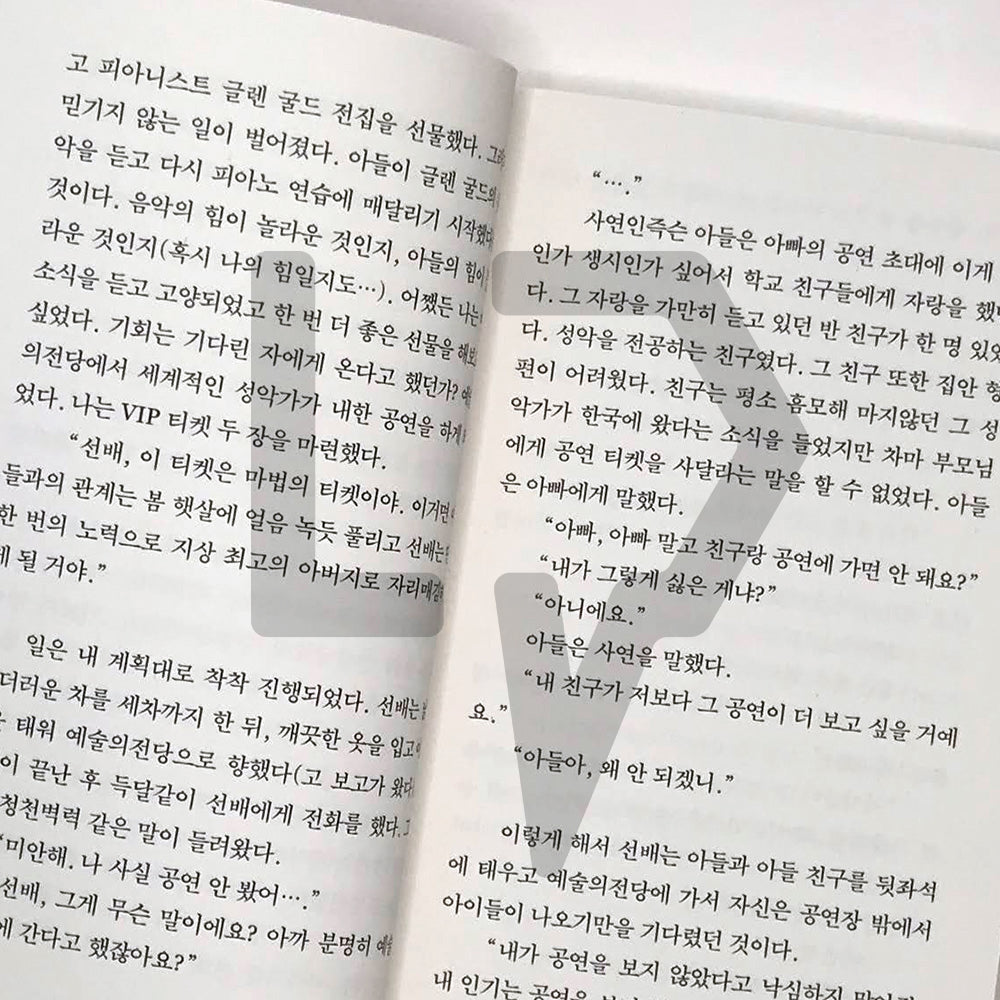 고 피아니스트 글렌 굴드 전집을 선물했다.
믿기지 않는 일이 벌어졌다. 아들이 글렌 굴드의
악을 듣고 다시 피아노 연습에 매달리기 시작했다
것이다. 음악의 힘이 놀라운 것인지, 아들의 힘이
라운 것인지(혹시 나의 힘일지도…). 어쨌든 나는
소식을 듣고 고양되었고 한 번 더 좋은 선물을 해보
싶었다. 기회는 기다린 자에게 온다고 했던가?
의전당에서 세계적인 성악가가 내한 공연을 하게
었다. 나는 VIP 티켓 두 장을 마련했다.
“선배, 이 티켓은 마법의 티켓이야. 이거면
들과의 관계는 봄 햇살에 얼음 녹듯 풀리고 선배는
한 번의 노력으로 지상 최고의 아버지로 자리매김
될 거야.”
일은 내 계획대로 착착 진행되었다. 선배는
더러운 차를 세차까지 한 뒤, 깨끗한 옷을 입고
태워 예술의전당으로 향했다(고 보고가 왔다
이 끝난 후 득달같이 선배에게 전화를 했다.
청천벽력 같은 말이 들려왔다.
“미안해. 나 사실 공연 안 봤어….”
선배, 그게 무슨 말이에요? 아까 분명히
에 간다고 했잖아요?”
“….”
사연인즉슨 아들은 아빠의 공연 초대에 이게
인가 생시인가 싶어서 학교 친구들에게 자랑을 했
다. 그 자랑을 가만히 듣고 있던 반 친구가 한 명 있었
다. 성악을 전공하는 친구였다. 그 친구 또한 집안 형
편이 어려웠다. 친구는 평소 흠모해 마지않던 그 성
악가가 한국에 왔다는 소식을 들었지만 차마 부모님
에게 공연 티켓을 사달라는 말을 할 수 없었다. 아들
은 아빠에게 말했다.
“아빠, 아빠 말고 친구랑 공연에 가면 안 돼요?”
“내가 그렇게 싫은 게냐?”
“아니에요.”
아들은 사연을 말했다.
“내 친구가 저보다 그 공연이 더 보고 싶을 거예
요.”
“아들아, 왜 안 되겠니.”
이렇게 해서 선배는 아들과 아들 친구를 뒷좌석
에 태우고 예술의전당에 가서 자신은 공연장 밖에서
아이들이 나오기만을 기다렸던 것이다.
“내가 공연을 보지 않았다고 낙심하지
내 인기는 공연을